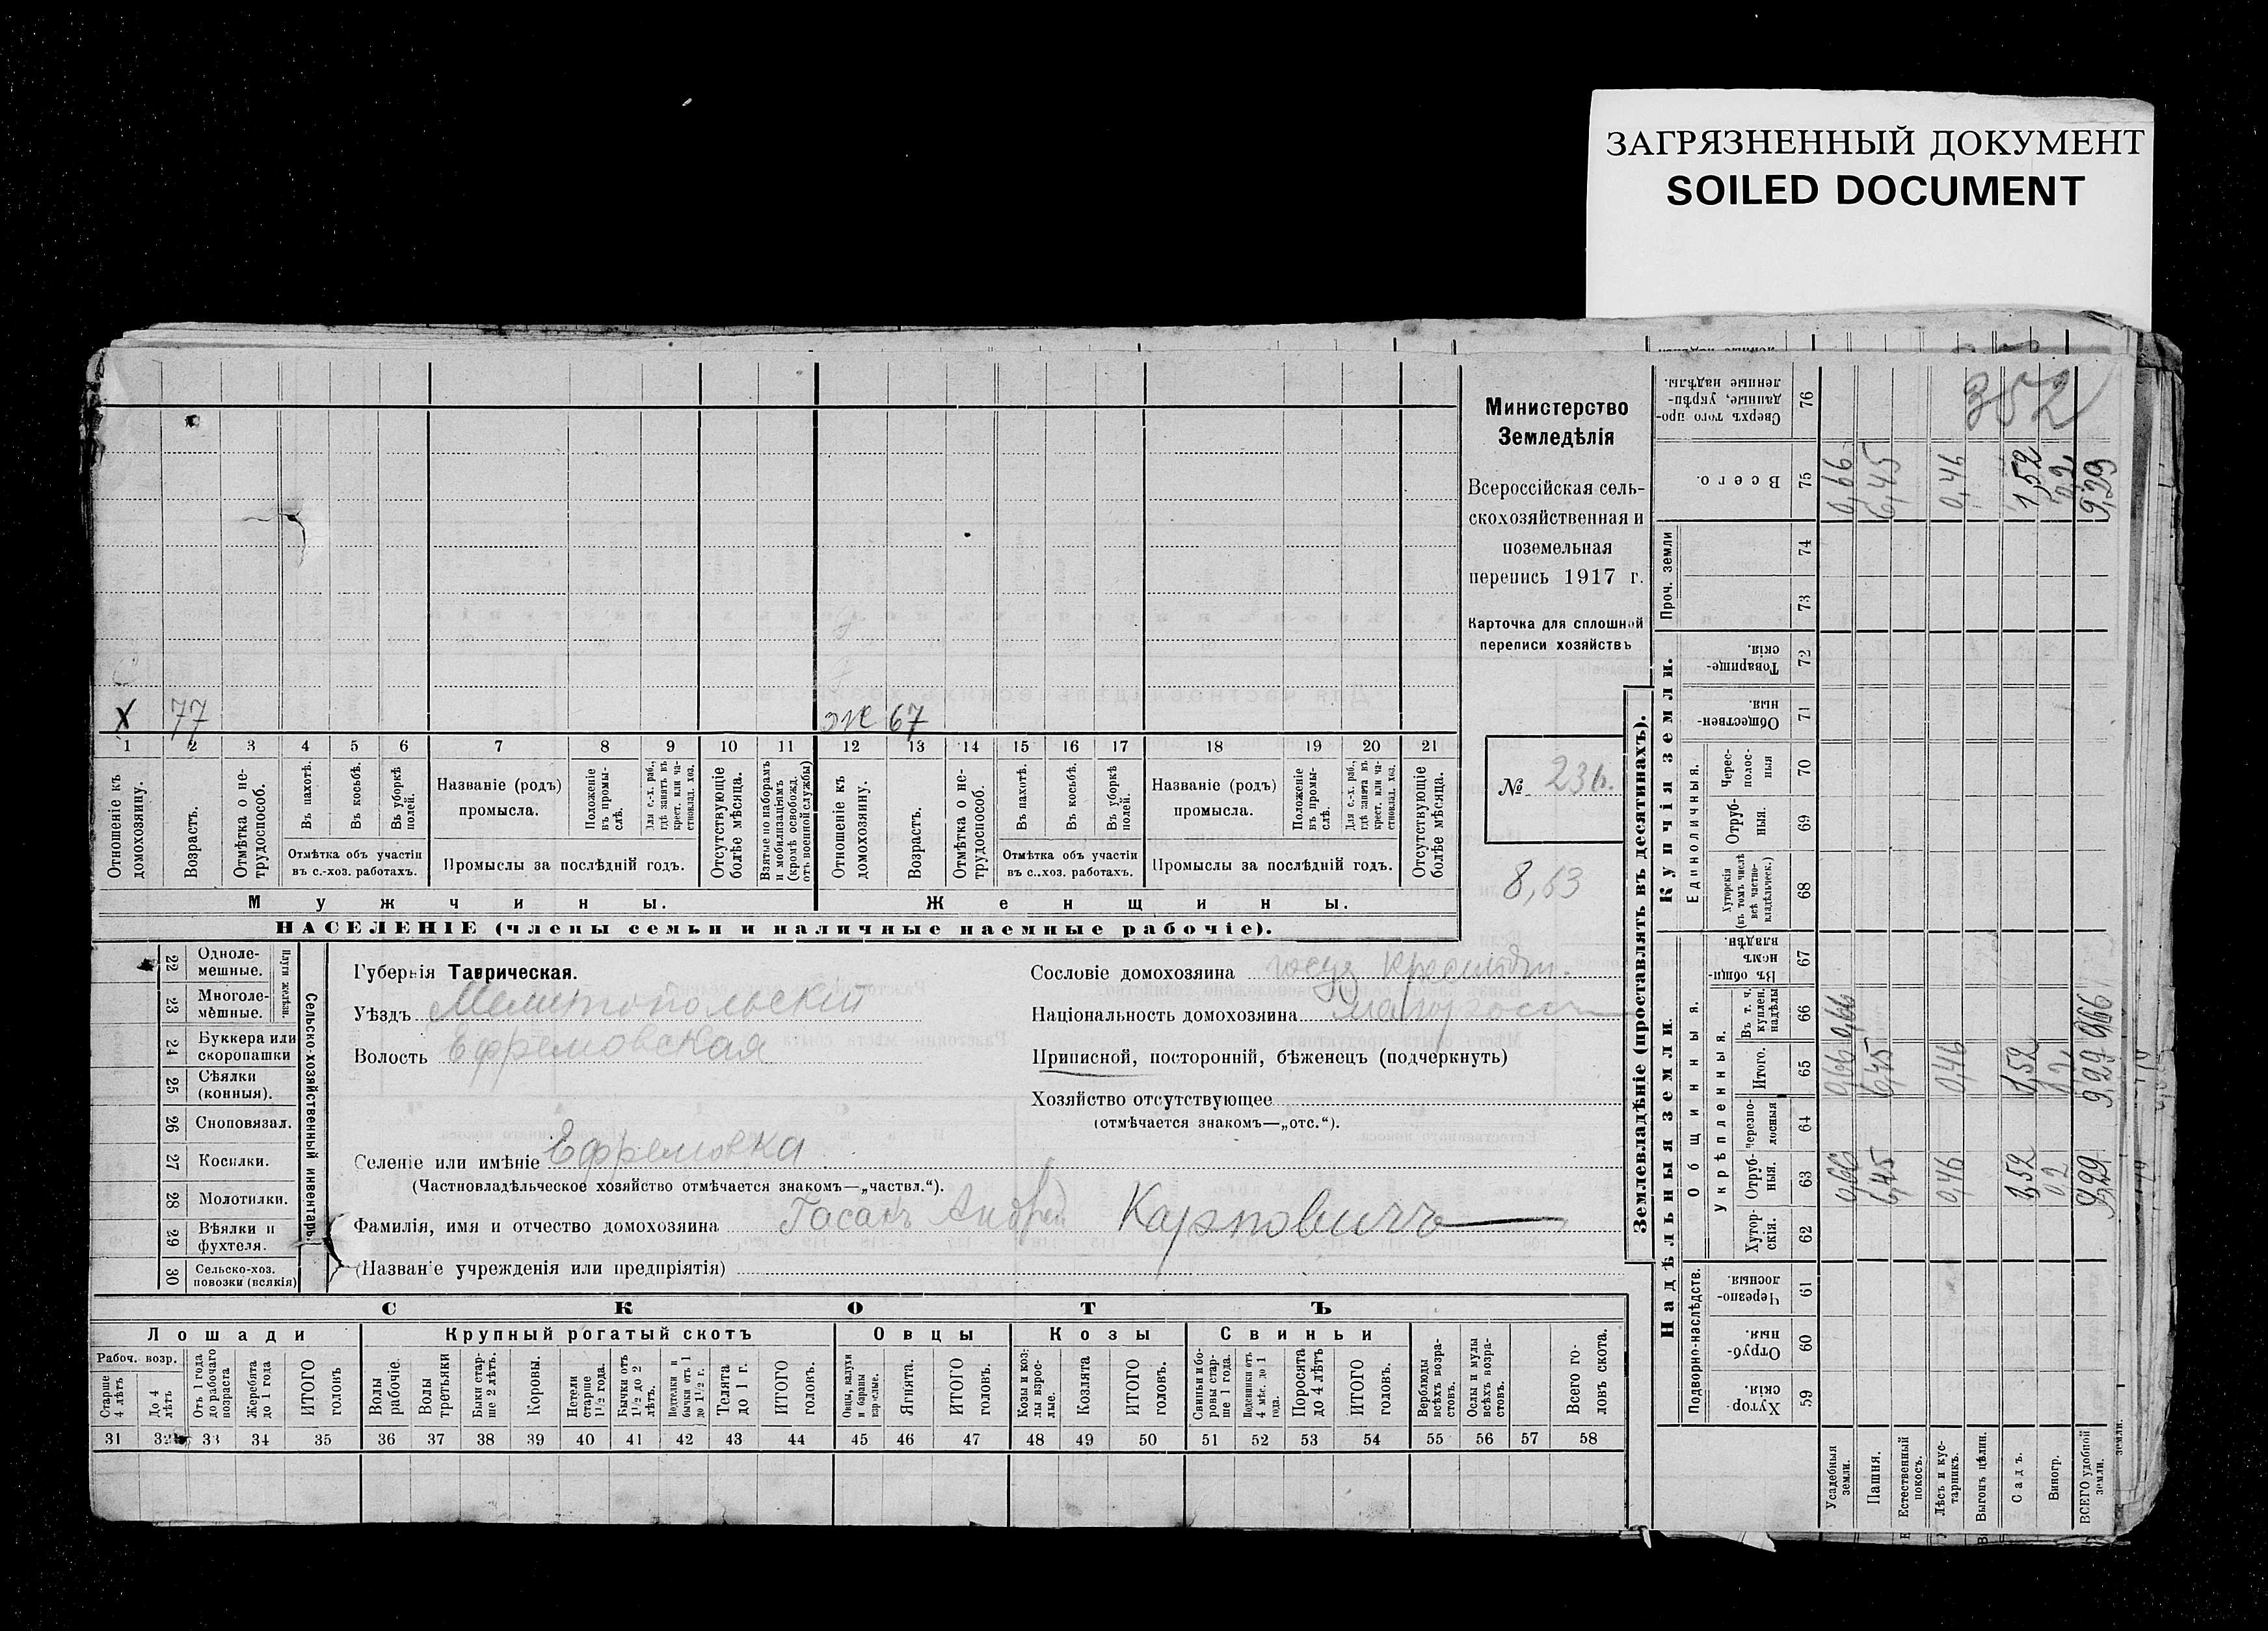 ЗАГРЯЗНЕННЫЙ ДОКУМЕНТ
SOILED DOCUMENT
352
Министерство
Земледѣлія
Всероссійская сель-
скохозяйственная и
поземельная
перепись 1917 г.
Карточка для сплошной
переписи хозяйствъ
№ 236.
8,63
Х 77 Ж 67
1 2 3 4 5 6 7 8 9 10 11 12 13 14 15 16 17 18 19 20 21
Отношеніе къ домохозяину.
Возрастъ.
Отмѣтка о не-трудоспособ.
Въ пахотѣ.
Въ косьбѣ.
Въ уборкѣ полей.
Отмѣтка объ участіи
въ с.-хоз. работахъ.
Названіе (родъ)
промысла.
Положеніе въ промы-слѣ.
Для с.-х. раб., гдѣ занятъ въ крест. или ча-стновлад. хоз.
Промыслы за послѣдній годъ.
Отсутствующіе болѣе мѣсяца.
Взятые по наборамъ и мобилизаціямъ (кромѣ освобожд. отъ военной службы)
Отношеніе къ домохозяину.
Возрастъ.
Отмѣтка о не-трудоспособ.
Въ пахотѣ.
Въ косьбѣ.
Въ уборкѣ полей.
Отмѣтка объ участіи
въ с..хоз. работахъ.
Названіе (родъ)
промысла.
Положеніе въ промы-слѣ.
Для с.-х. раб., гдѣ занята въ крест. или ча-стновлад. хоз.
Промыслы за послѣдній годъ.
Отсутствующіе болѣе мѣсяца.
Мужчины. Женщины.
НАСЕЛЕНІЕ (члены семьи и наличные наемные рабочіе).
22 Одноле-мешные.
23 Многоле-мѣшные.
Плуги желѣзн.
24 Буккера или скоропашки
25 Сѣялки (конныя).
26 Сноповязал.
27 Косилки.
28 Молотилки.
29 Вѣялки и фухтеля.
30 Сельско-хоз. повозки (всякія)
Сельско-хозяйственный инвентарь.
Губернія Таврическая.
Уѣздъ Мелитопольскій
Волость Ефремовская
Селеніе или имѣніе Ефремовка
(Частновладѣльческое хозяйство отмѣчается знакомъ—„частвл.“).
Фамилія, имя и отчество домохозяина Гасанъ Андрей Карповичъ
(Названіе учрежденія или предпріятія)
Сословіе домохозяина
Національность домохозяина малоросс
Приписной, посторонній, бѣженецъ (подчеркнуть)
Хозяйство отсутствующее
(отмѣчается знакомъ—„отс.“).
СКОТЪ
Лошади Крупный рогатый скотъ Овцы Козы Свиньи
Рабоч. возр.
Старше 4 лѣтъ
До 4 лѣтъ
Отъ 1 года до рабочаго возраста
Жеребята до 1 года
ИТОГО головъ
Волы рабочіе.
Волы третьяки
Быки стар-ше 2 лѣтъ.
Коровы.
Нетели старше 1½ года.
Бычки отъ 1½ до 2 лѣтъ.
Подтелки и бычки отъ 1 до 1½ г.
Телята до 1 г.
ИТОГО головъ.
Овцы, валухи и бараны взрослые.
Ягнята.
ИТОГО головъ.
Козы и коз-лы взрос-лые.
Козлята
ИТОГО головъ.
Свиньи и бо-ровы стар-ше 1 года.
Подсвинки отъ 4 мѣс. до 1 года.
Поросята до 4 лѣтъ
ИТОГО головъ.
Верблюды всѣхъ возра-стовъ.
Ослы и мулы всѣхъ возра-стовъ.
Всего го-ловъ скота.
31 32 33 34 35 36 37 38 39 40 41 42 43 44 45 46 47 48 49 50 51 52 53 54 55 56 57 58
Землевладѣніе (проставлять въ десятинахъ).
Купчія земли.
Надѣльныя земли.
Сверхъ того про-данные, укрѣп-ленные надѣлы. 76
Всего. 75 0,66 6,45 0,46 1,52 0,2 9,29
Проч. земли 74 73
Товарище-скія. 72
Обществен-ныя. 71
Единоличныя.
Черес-полос-ныя 70
Отруб-ныя. 69
Хуторскія (въ томъ числѣ всѣ частно-владѣльческ.) 68
Общинныя.
Въ общи-номъ владѣн. 67
Укрѣпленныя.
Въ т. ч. куплен. надѣлы 66 0,66 9,66
Итого. 65 0,66 6,45 0,46 1,52 0,2 9,29
Черезпо-лосныя 64
Отруб-ныя. 63 0,66 6,45 0,46 1,52 0,2 9,29
Хутор-скія. 62
Подворно-наслѣдств.
Черезпо-лосныя 61
Отруб-ныя. 60
Хутор-скія. 59
Усадебныя земли.
Пашня.
Естественный покосъ.
Лѣсъ и кус-тарникъ.
Выгонъ цѣлин.
Садъ.
Виногр.
ВСЕГО удобной земли.